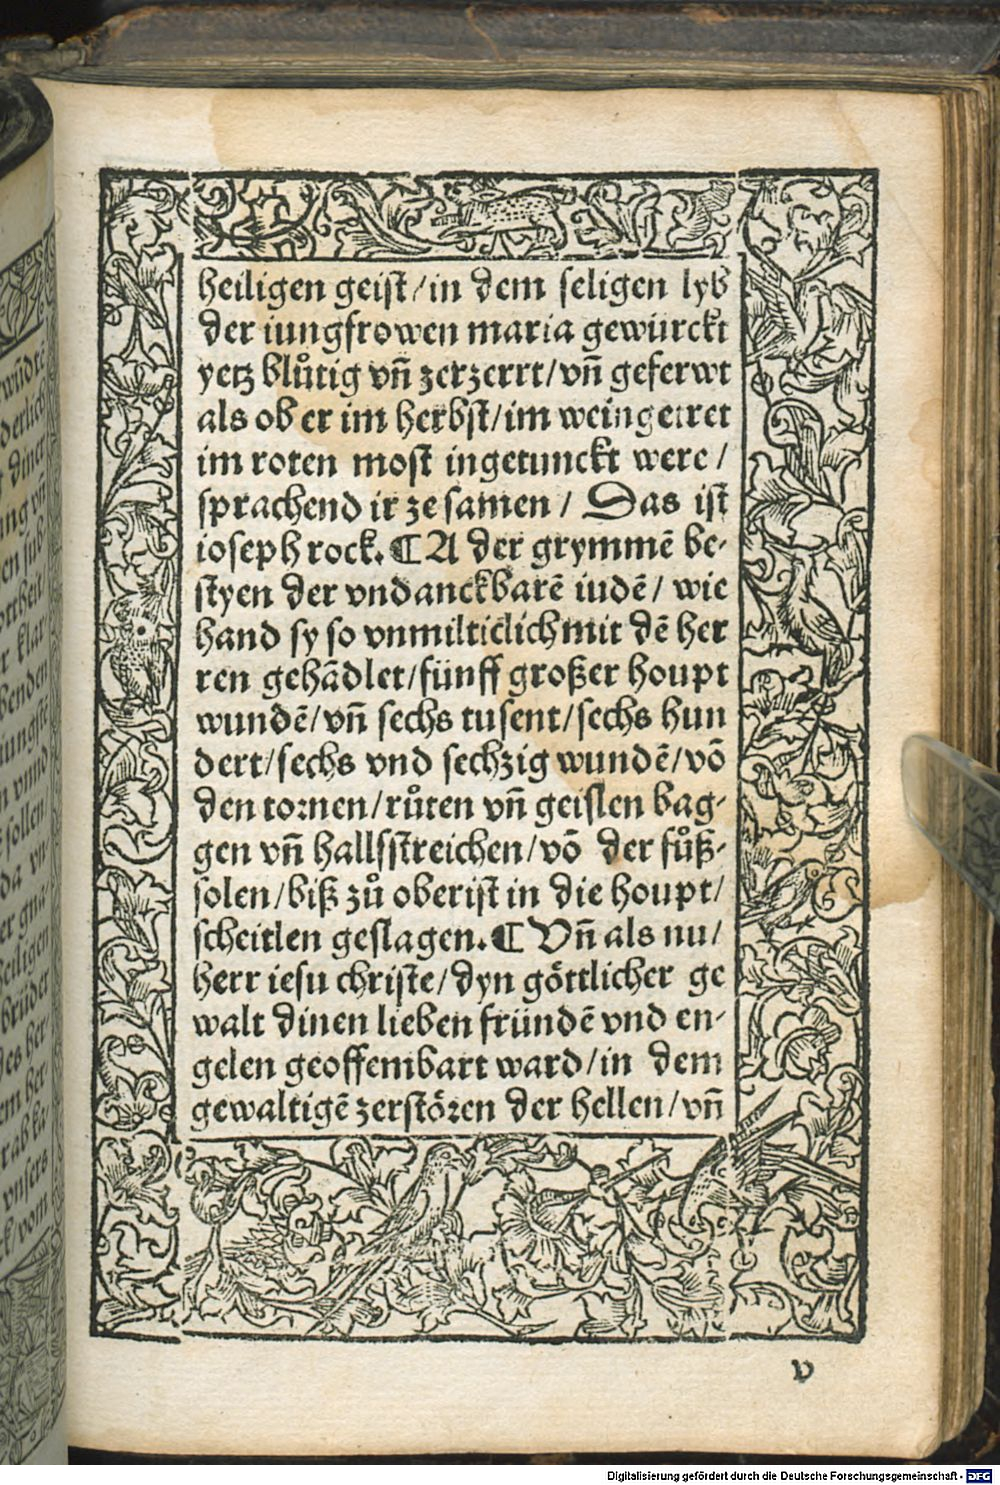 heiligen geist/in dem seligen lyb
der iungfrowen maria gewürckt
yetz blůtig vñ zerzerrt/vñ geferwt
als ob er im herbst/im weingetret
im roten most ingetunckt were/
sprachend ir ze samen/ Das ist
ioseph rock. ¶ A der grymmē be-
styen der vndanckbarē iudē/ wie
hand sy so vnmilticlich mit dē her
ren gehādlet/fünff großer houpt
wundē/vñ sechs tusent/sechs hun
dert/sechs vnd sechzig wundē/vō
den tornen/růten vñ geislen bag-
gen vñ hallsstreichen/vō der fůß-
solen/biß zů oberist in die houpt/
scheitlen geslagen. ¶ Vñ als nu/
herr iesu christe/dyn göttlicher ge
walt dinen lieben fründē vnd en-
gelen geoffembart ward/in dem
gewaltigē zerstören der hellen/vñ
v
wūdtē
derlich
diner
ung vñ
en sub
ottheit/
r klar
benden
iungstē
n vnnd
sollen
da vn-
er gna
heiligen
brüder
des her-
em her
rab ka
vnsers
ck/vom
Digitalisierung gefördert durch die Deutsche Forschungsgemeinschaft - DFG